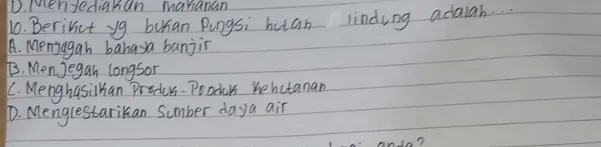 D. Menyediakan makanan
10. Berikut yg bukan Pungsi hutan lindung adalah...
A. Menjagah bahaya banjir
B. Menjegah longsor
C. Menghasilkan Produk-Produk Kehutanan
D. Menglestarikan Sumber daya air
anda?